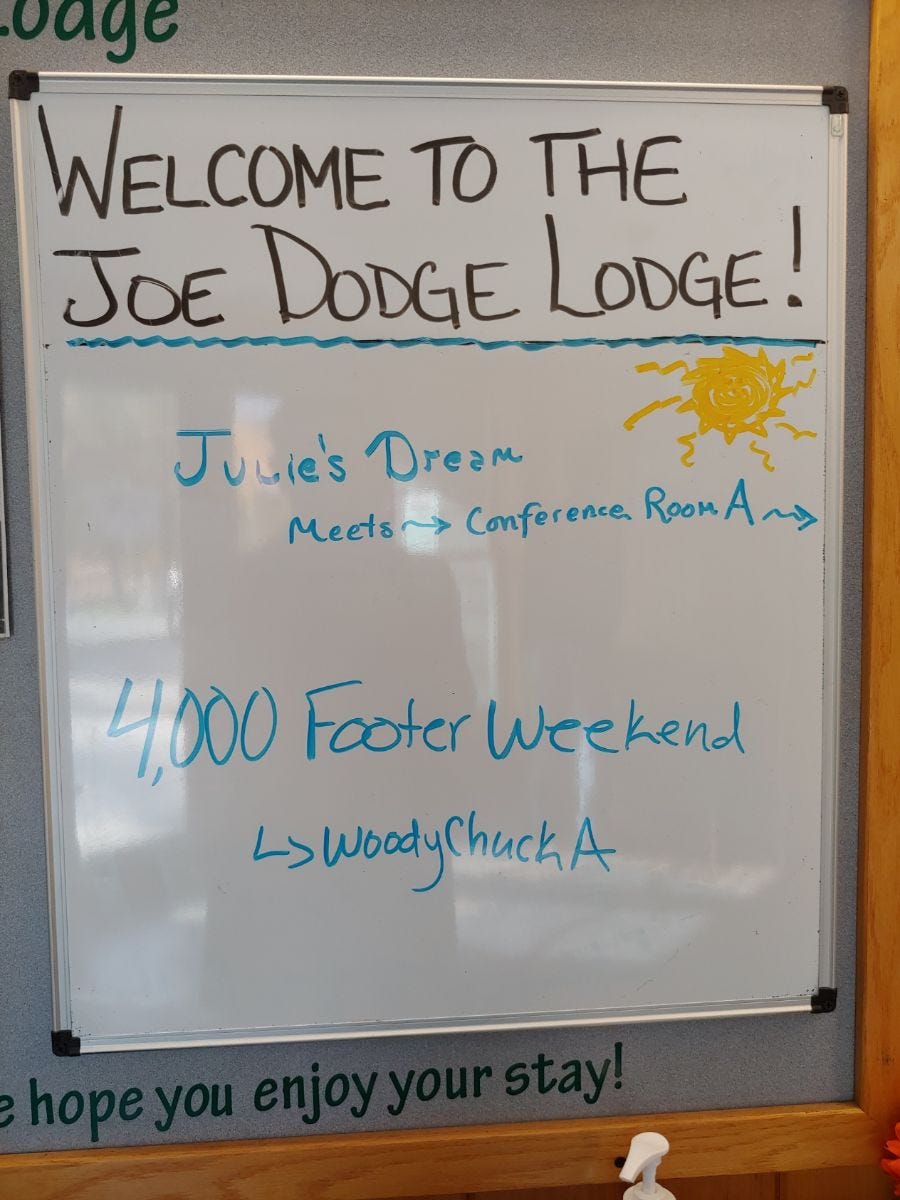 Lodge
WELCOME TO THE
JOE DODGE LODGE!
Julie's Dream
Meets → Conference Room A →
4,000 Footer Weekend
↳ Woody Chuck A
hope you enjoy your stay!